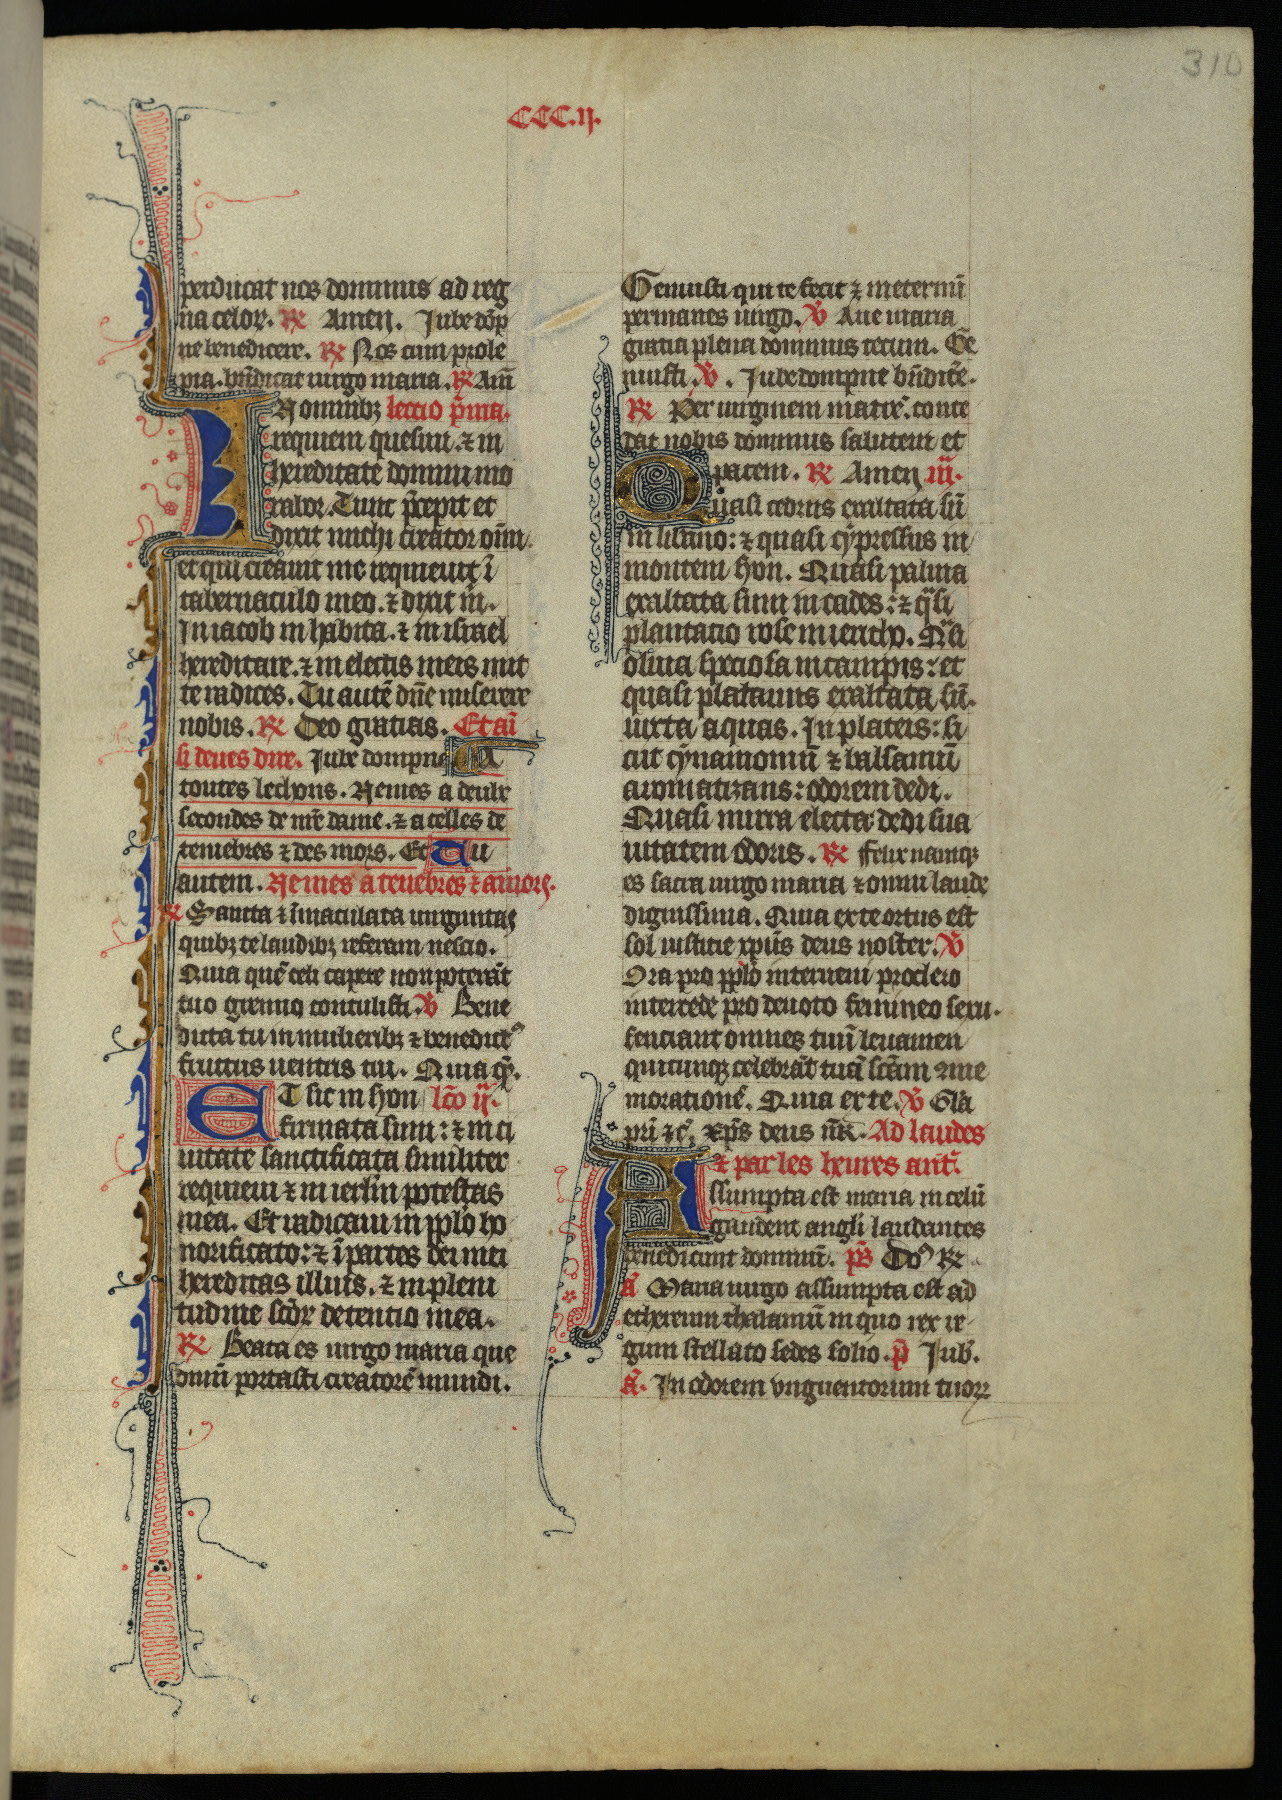 310
CCC.ij.
perducat nos dominus ad reg
na celoꝝ. ℟ Amen. Jube dōp
ne benedicere. ℟ Nos cum prole
pia. bn̄dicat uirgo maria. ℟ Am̄
IN omnibꝫ lectio p̄ma.
requiem quesiui. ⁊ in
hereditate domini mo
rabor. Tunc p̄cepit et
dixit michi creator om̄iu.
et qui creauit me requieuit ī
tabernaculo meo. ⁊ dixit m̄.
In iacob inhabita. ⁊ in israel
hereditare. ⁊ in electis meis mit
te radices. Tu autē dn̄e miserere
nobis. ℟ Deo gratias. Et aī
si deues dire. Jube dompne A
toutes lechons. Remes a deulx
secondes de nr̄e dame. ⁊ a celles de
tenebres ⁊ des mors. Et Tu
autem. Remes a tenebres ⁊ a mors.
℟ Sancta ⁊ īmaculata uirginitas
quibꝫ te laudibꝫ referam nescio.
Quia quē celi capere non poterāt
tuo gremio contulisti. ℣ Bene
dicta tu in mulieribꝫ ⁊ benedictꝰ
fructus uentris tui. Quia q̄.
ET sic in syon lc̄o ij.
firmata sum: ⁊ in ci
uitate sanctificata similiter
requieui ⁊ in ierl̄m potestas
mea. Et radicaui in ppl̄o ho
norificato: ⁊ ī partes dei mei
hereditas illius. ⁊ in pleni
tudine sc̄oꝝ detentio mea.
℟ Beata es uirgo maria que
dn̄m portasti creatorē mundi.
Genuisti qui te fecit ⁊ in eternū
permanes uirgo. ℣ Aue maria
gratia plena dominus tecum. Ge
nuisti. ℣. Jube dompne bn̄dic̄e.
℟ Per uirginem matrē. conce
dat nobis dominus salutem et
pacem. ℟ Amen iij.
Quasi cedrus exaltata sū
in libano: ⁊ quasi cypressus in
montem syon. Quasi palma
exaltata sum in cades: ⁊ q̄si
plantatio rose in iericho. Q̄si
oliua speciosa in campis: et
quasi platanus exaltata sū.
iuxta aquas. In plateis: si
cut cynamomū ⁊ balsamū
aromatizans: odorem dedi.
Quasi mirra electa: dedi sua
uitatem odoris. ℟ Felix namqꝫ
es sacra uirgo maria ⁊ omni laude
dignissima. Quia ex te ortus est
sol iustitie xp̄us deus noster. ℣
Ora pro ppl̄o interueni pro clero
intercede pro deuoto femineo sexu.
senciant omnes tuū leuamen
quicunqꝫ celebrāt tuā sc̄am 9me
morationē. Quia ex te. ℣ Gl̄a
pr̄i ⁊c̄. Xp̄s deus nr̄. Ad laudes
⁊ par les heures ant̄.
Assumpta est maria in celū
gaudent angl̄i laudantes
benedicunt dominū. ps̄ Dn̄s R̄
a̅ Maria uirgo assumpta est ad
ethereum thalamū in quo rex re
gum stellato sedet solio. p̄ Jub̄.
a̅. In odorem vnguentorum tuoꝝ